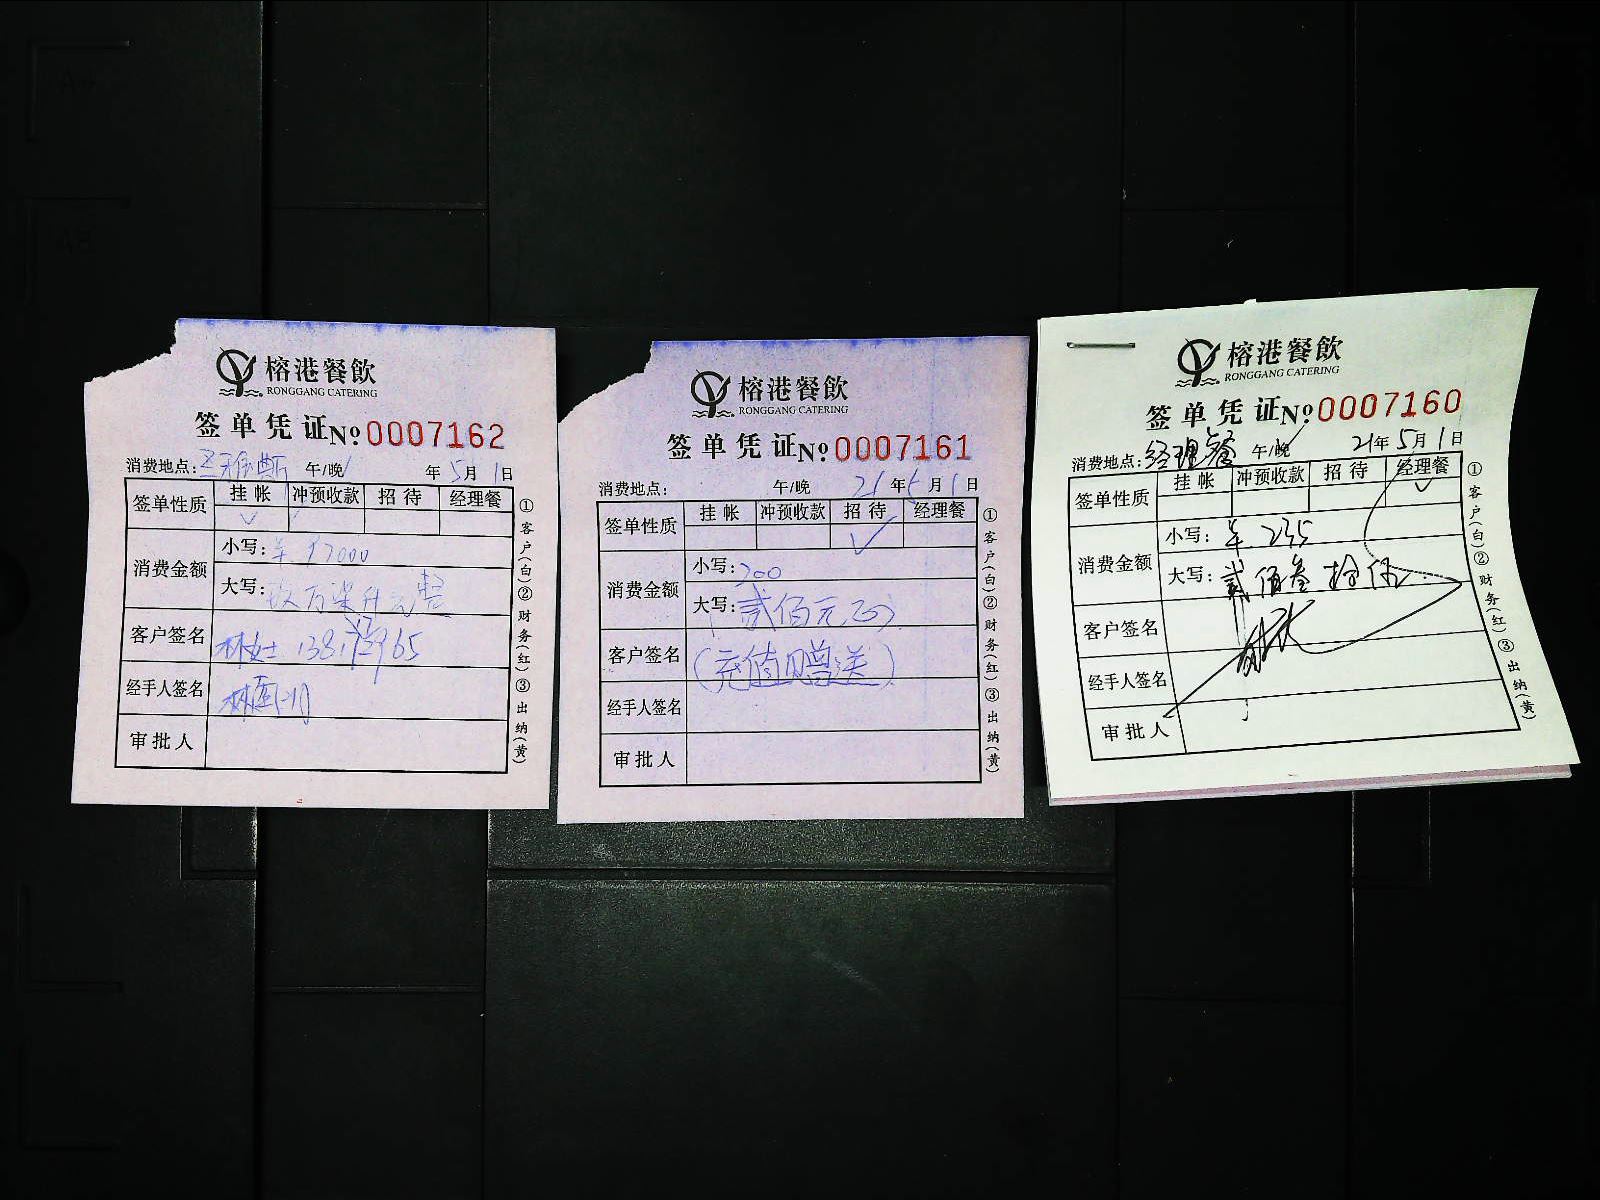 榕港餐飲
RONGGANG CATERING
签单凭证№0007162
消费地点: 午/晚 年5月1日
签单性质 挂帐 冲预收款 招待 经理餐
消费金额
小写:
大写: 万柒 元整
客户签名 林女士
经手人签名
审批人
①客户(白)②财务(红)③出纳(黄)
榕港餐飲
RONGGANG CATERING
签单凭证№0007161
消费地点: 午/晚 21年5月1日
签单性质 挂帐 冲预收款 招待 经理餐
消费金额
小写:200
大写:贰佰元正
客户签名 (充值赠送)
经手人签名
审批人
①客户(白)②财务(红)③出纳(黄)
榕港餐飲
RONGGANG CATERING
签单凭证№0007160
消费地点:经理餐 午/晚 21年5月1日
签单性质 挂帐 冲预收款 招待 经理餐
消费金额
小写:羊 235
大写:贰佰叁拾伍
客户签名
经手人签名
审批人
①客户(白)②财务(红)③出纳(黄)